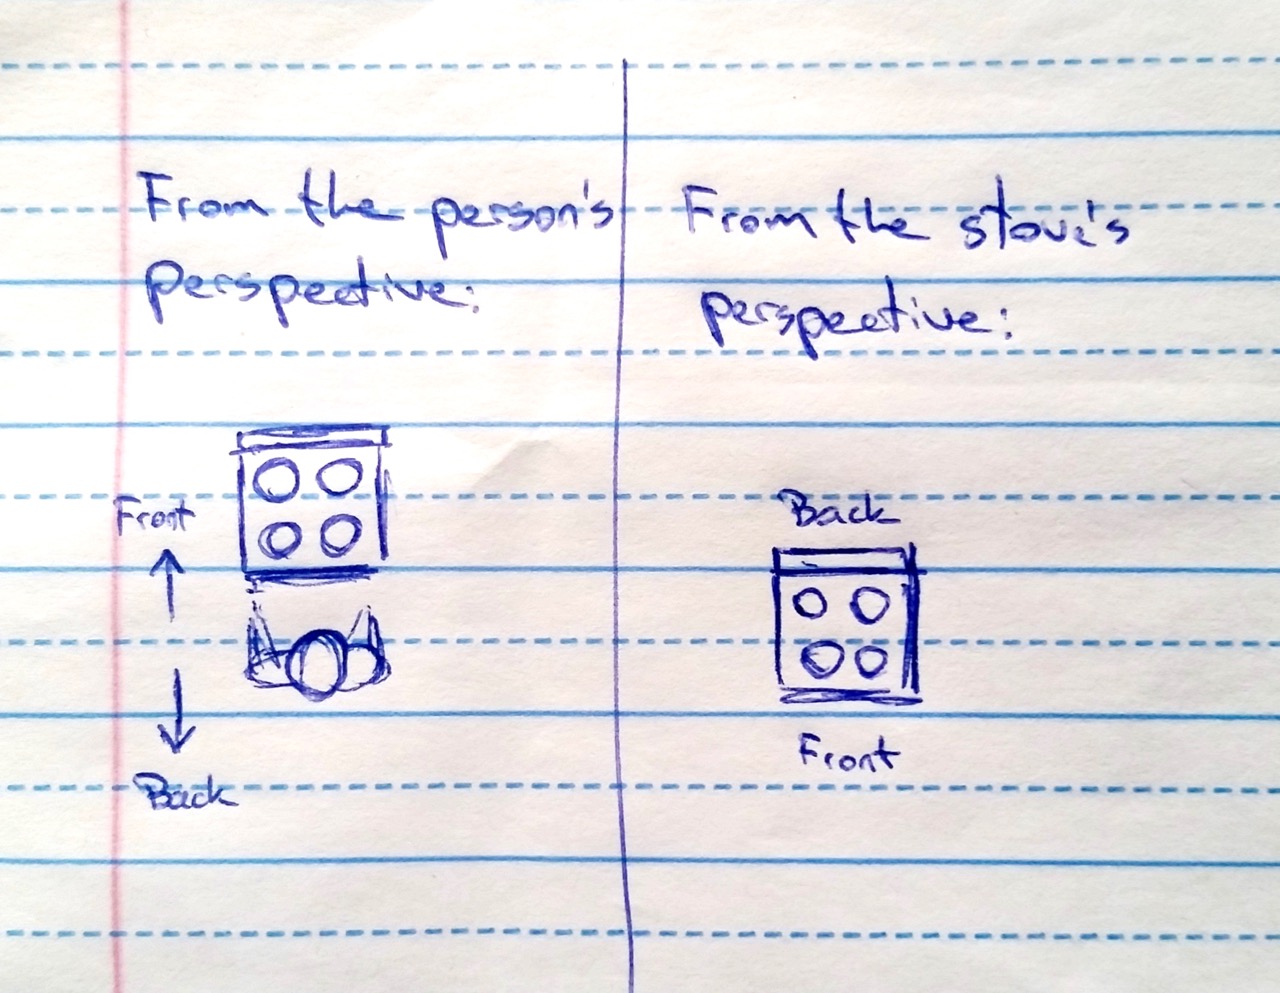 From the person's
perspective:
Front
Back
From the stove's
perspective:
Back
Front